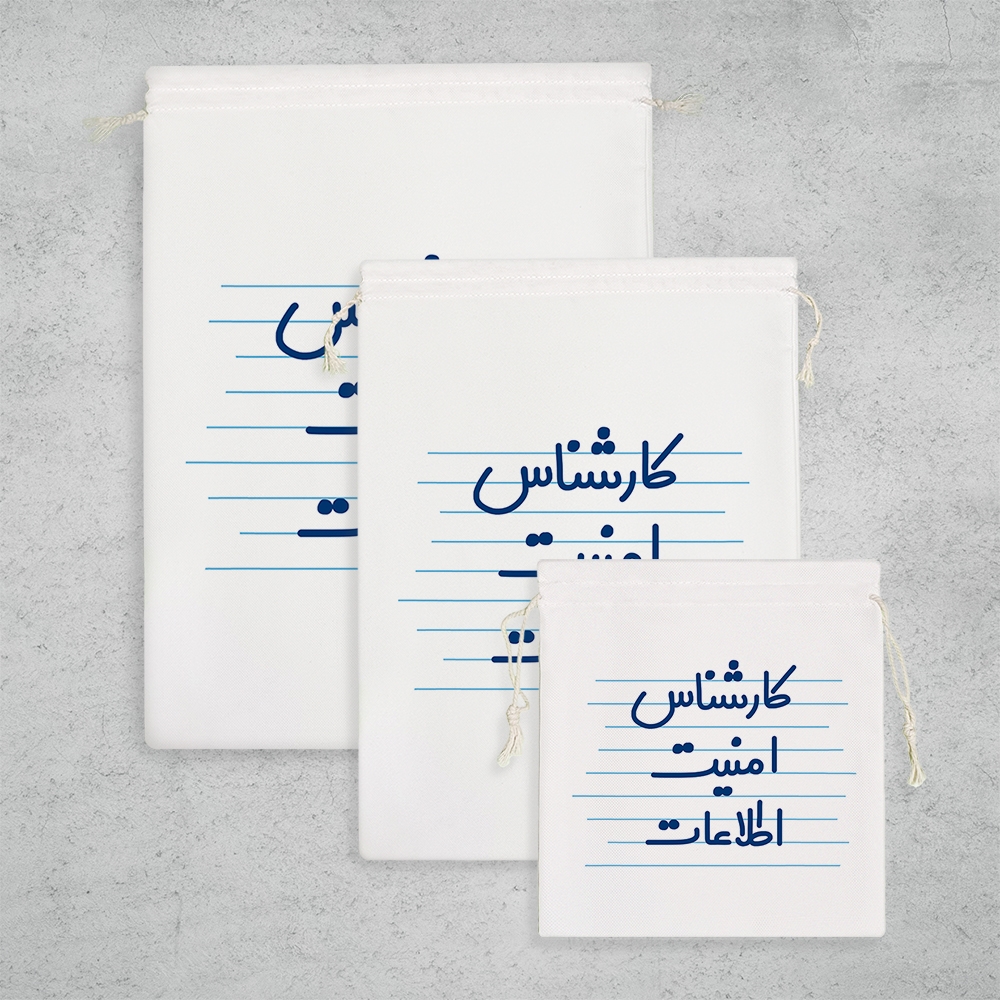 کارشناس
امنیت
کارشناس
امنیت
اطلاعات